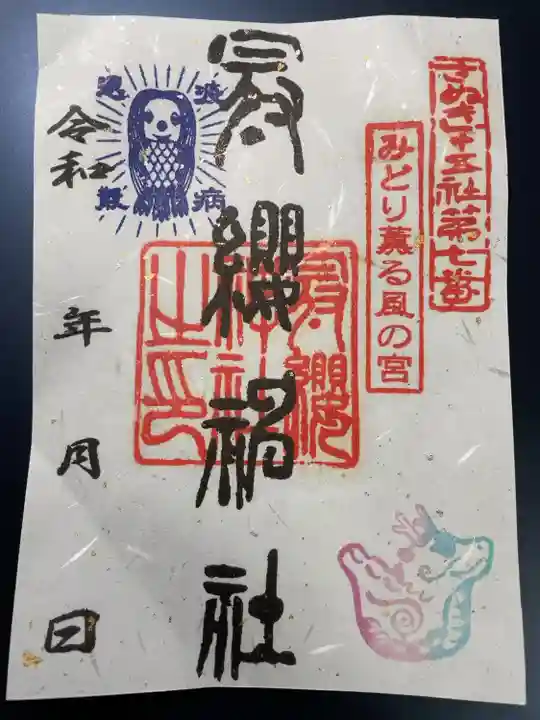 さぬき十五社第七番
みどり薫る風の宮
冠纓神社
冠纓
神社
之印
疫病
退散
令和
年
月
日